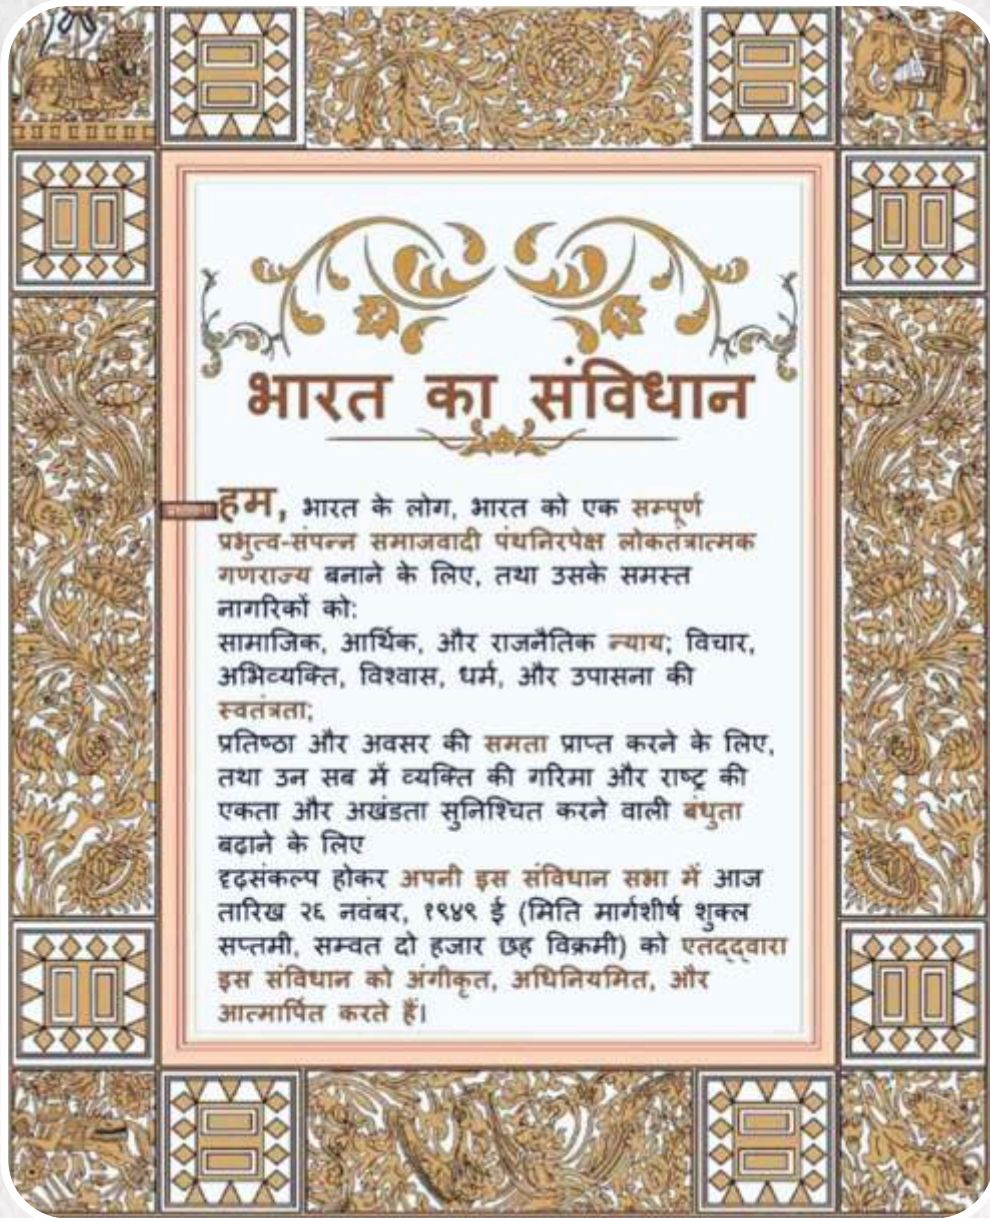 भारत का संविधान
हम, भारत के लोग, भारत को एक सम्पूर्ण
प्रभुत्व-संपन्न समाजवादी पंथनिरपेक्ष लोकतंत्रात्मक
गणराज्य बनाने के लिए, तथा उसके समस्त
नागरिकों को:
सामाजिक, आर्थिक, और राजनैतिक न्याय; विचार,
अभिव्यक्ति, विश्वास, धर्म, और उपासना की
स्वतंत्रता;
प्रतिष्ठा और अवसर की समता प्राप्त करने के लिए,
तथा उन सब में व्यक्ति की गरिमा और राष्ट्र की
एकता और अखंडता सुनिश्चित करने वाली बंधुता
बढ़ाने के लिए
दृढ़संकल्प होकर अपनी इस संविधान सभा में आज
तारिख २६ नवंबर, १९४९ ई (मिति मार्गशीर्ष शुक्ल
सप्तमी, सम्वत दो हजार छह विक्रमी) को एतद्द्वारा
इस संविधान को अंगीकृत, अधिनियमित, और
आत्मार्पित करते हैं।